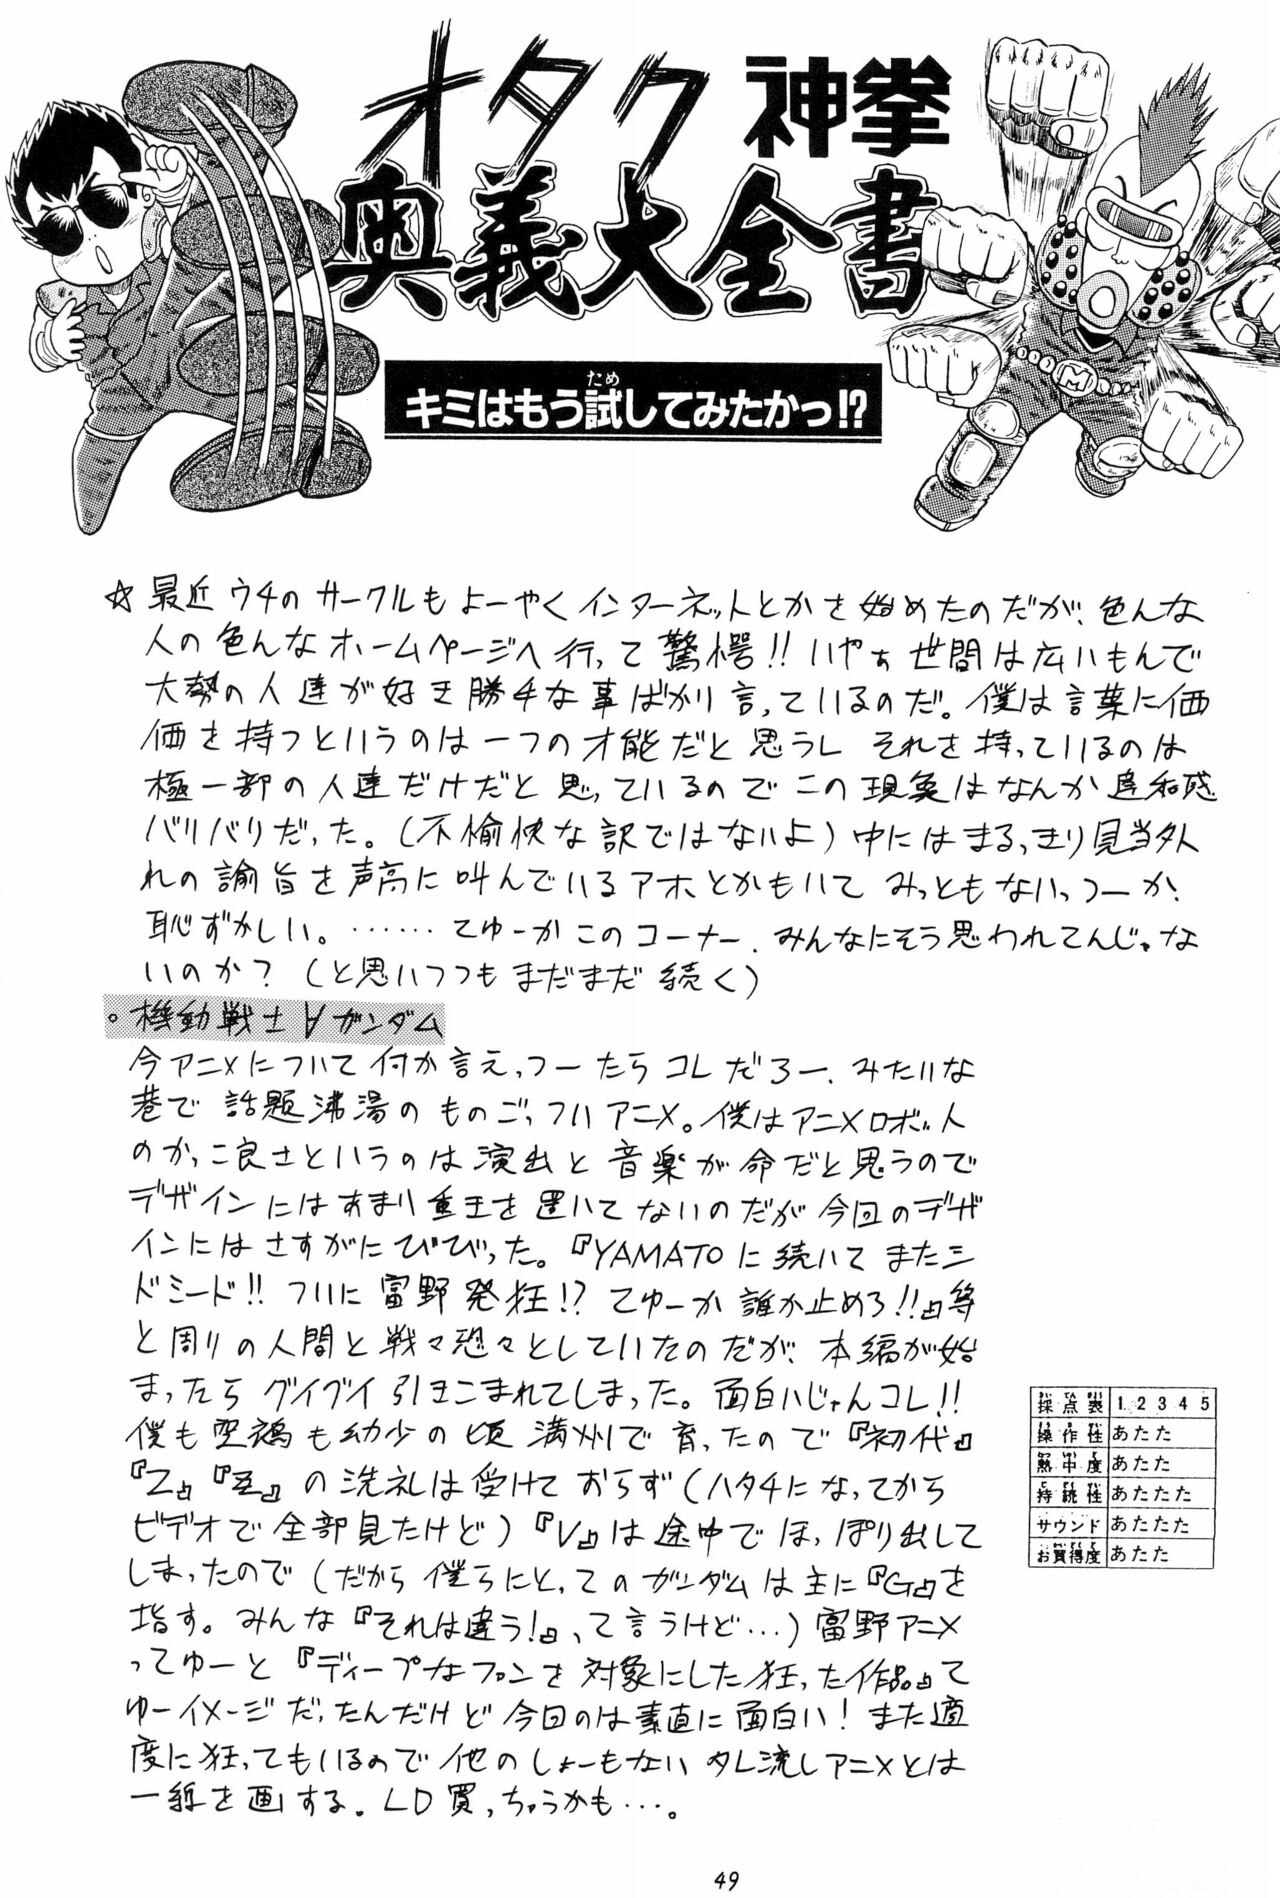 オタク神拳
奥義大全書
キミはもう試してみたかっ!?
ため
☆最近ウチのサークルもよーやくインターネットとかを始めたのだが、色んな
人の色んなホームページへ行って驚愕!!いやぁ世間は広いもんで
大勢の人達が好き勝手な事ばかり言っているのだ。僕は言葉に価
価を持つというのは一つの才能だと思うし それを持っているのは
極一部の人達だけだと思っているのでこの現象はなんか違和感
バリバリだった。(不愉快な訳ではないよ)中にはまるっきり見当外
れの諭旨を声高に叫んでいるアホとかもいて みっともないっつーか、
恥ずかしい。……てゆーかこのコーナー、みんなにそう思われてんじゃな
いのか?(と思いつつもまだまだ続く)
。機動戦士∀ガンダム
今アニメについて何か言えっつーたらコレだろー、みたいな
巷で話題沸湯のものごっついアニメ。僕はアニメロボット
のかっこ良さというのは演出と音楽が命だと思うので
デザインにはあまり重王を置いてないのだが今回のデザ
インにはさすがにびびった。『YAMATOに続いてまたシ
ドミード!!ついに富野発狂!?てゆーか誰か止めろ!!』等
と周りの人間と戦々恐々としていたのだが、本編が始
まったらグイグイ引きこまれてしまった。面白いじゃんコレ!!
僕も空鵺も幼少の頃満州で育ったので『初代』
『Z』『ZZ』の洗礼は受けておらず(ハタチになってから
ビデオで全部見たけど)『V』は途中でほっぽり出して
しまったので(だから僕らにとってのガンダムは主に『G』を
指す。みんな『それは違う!』って言うけど…)富野アニメ
ってゆーと『ディープなファンを対象にした狂った作品』て
ゆーイメージだったんだけど今回のは素直に面白い!また適
度に狂ってもいるので他のしょーもないタレ流しアニメとは
一線を画する。LD買っちゃうかも…。
採点表 1 2 3 4 5
操作性 あたた
熱中度 あたた
持続性 あたたた
サウンド あたたた
お買得度 あたた
49